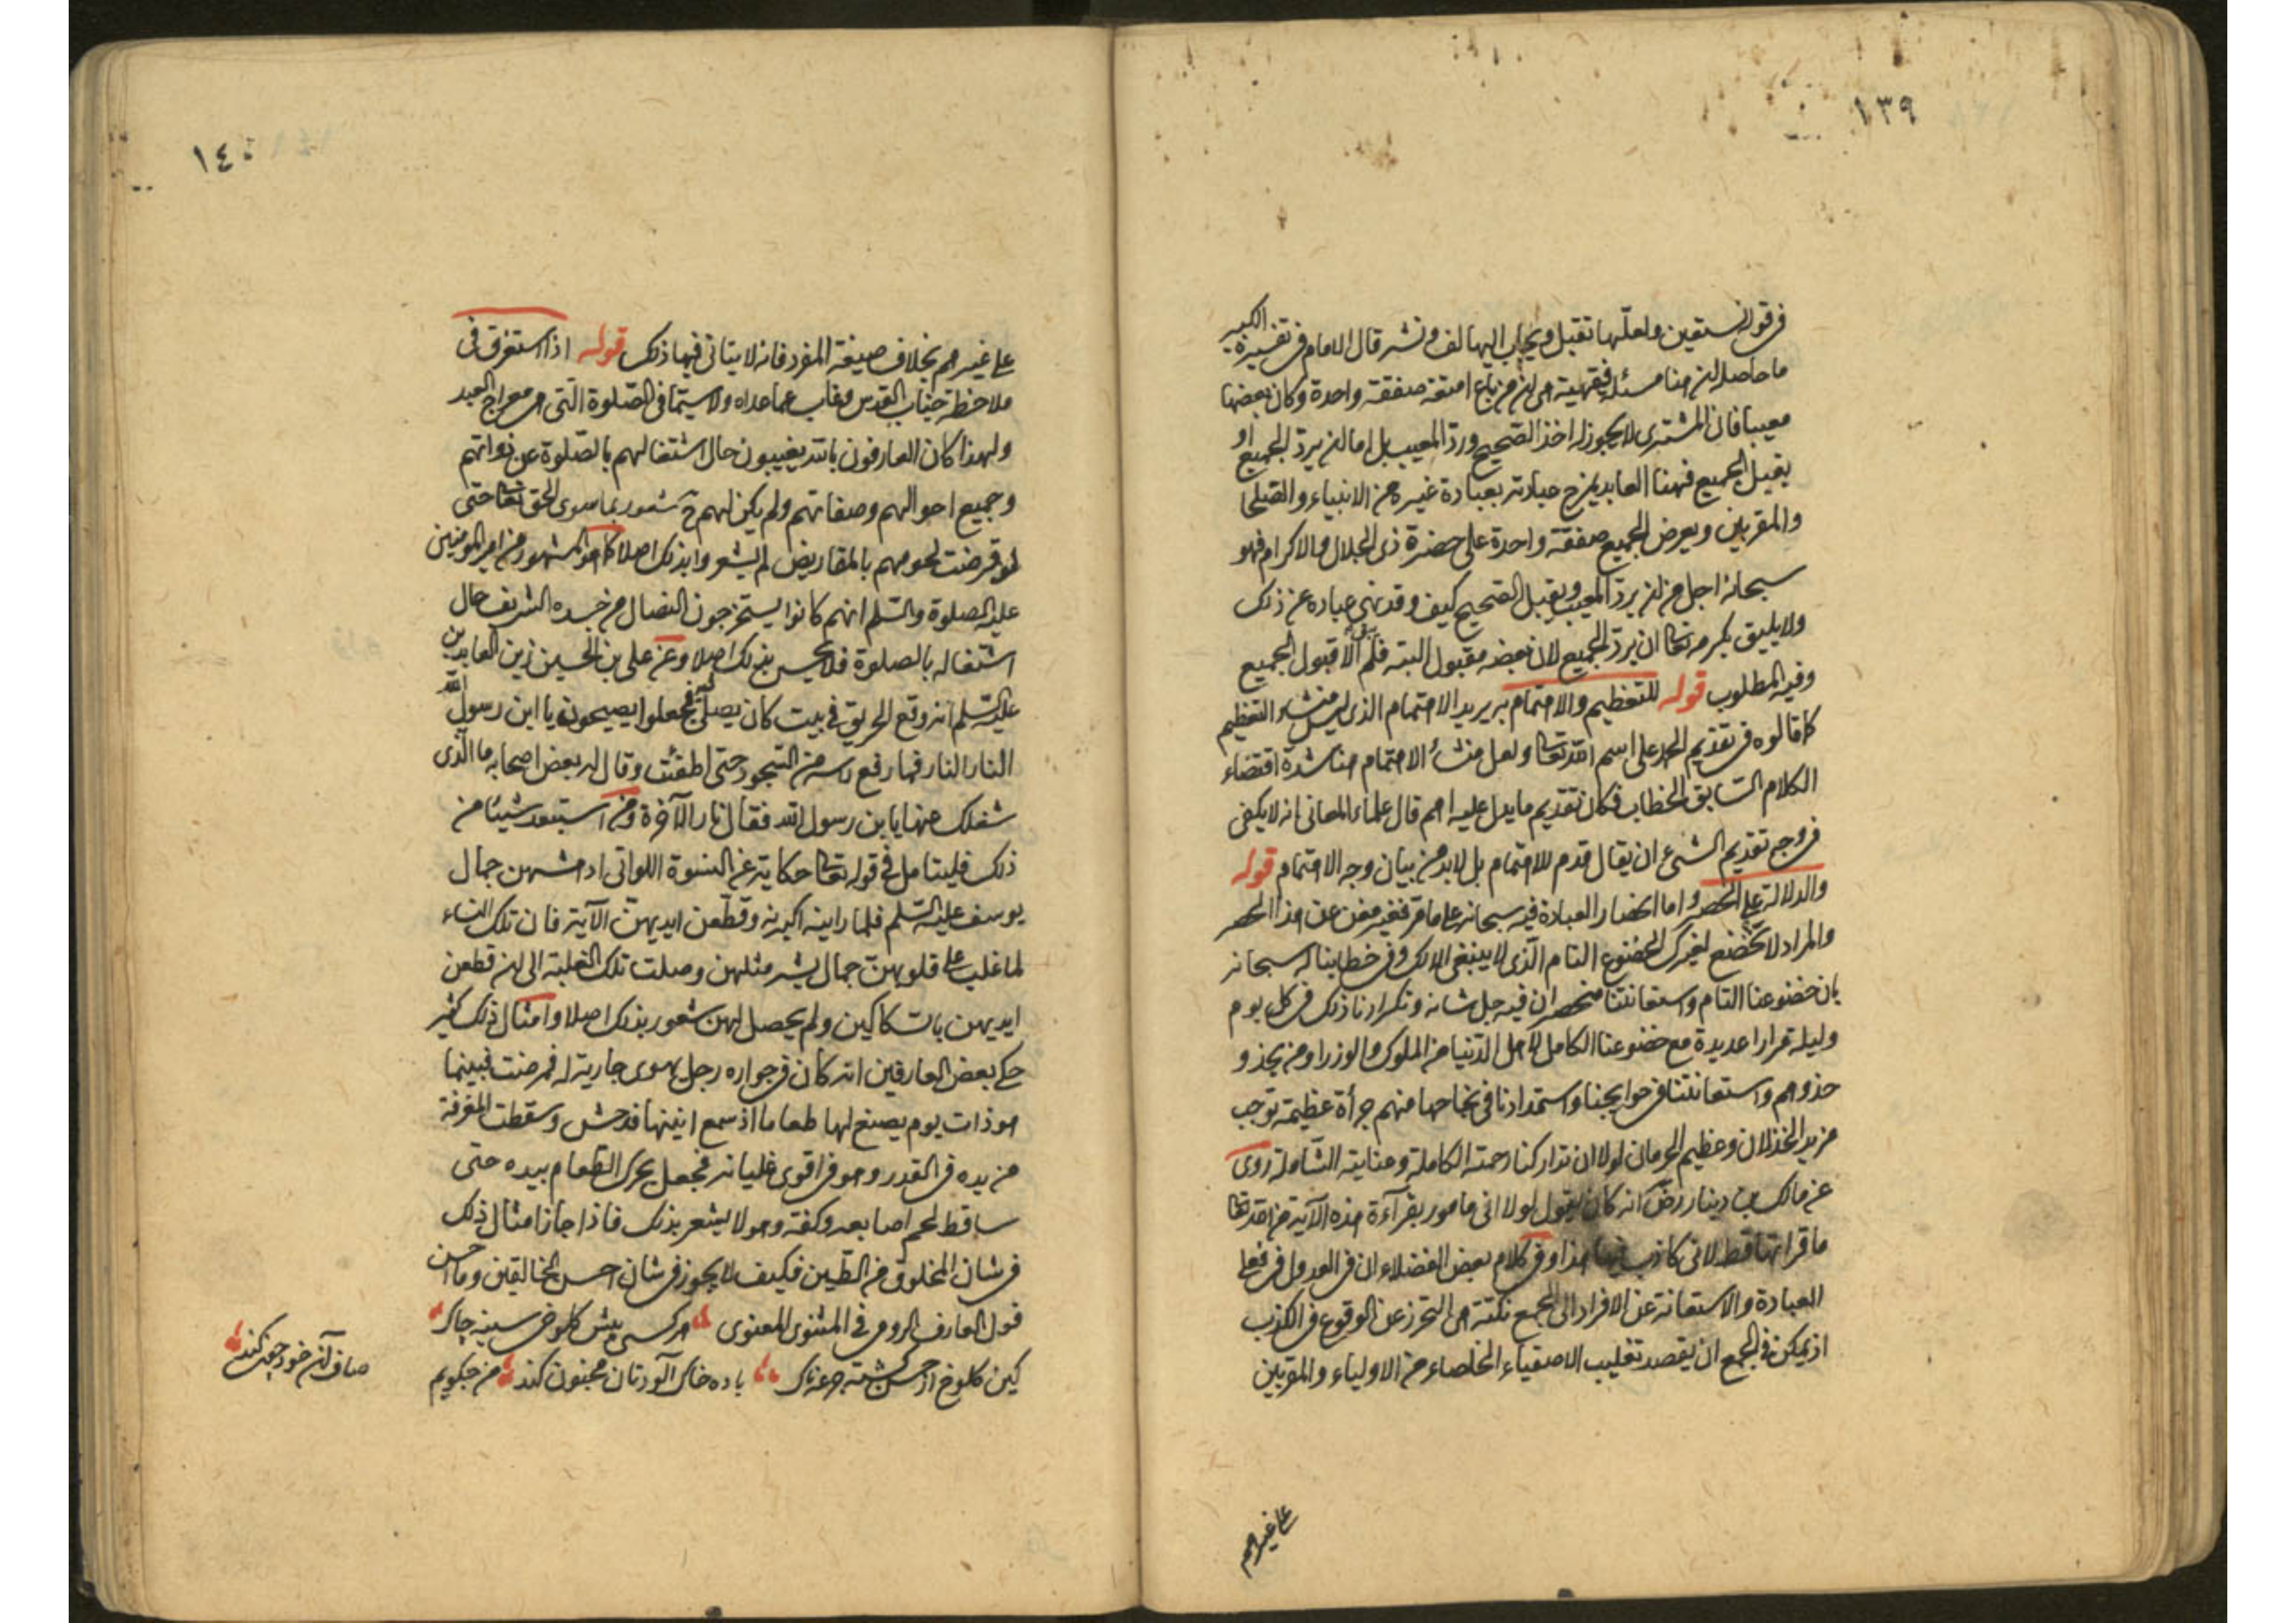 ١٣٩
فى قوله نستعين ولعلّها تقبل ويجاب اليها لف ونشر قال الامام فى تفسيره الكبير
ما حاصله ان هنا مسئلة فقهية هى ان من باع امتعة صفقة واحدة وكان بعضها
معيبا فان المشترى لا يجوز له اخذ الصّحيح وردّ المعيب بل اما ان يردّ الجميع او
يقبل الجميع فههنا العابد يمزج عبادته بعبادة غيره من الانبياء والصّلحا
والمقربين ويعرض الجميع صفقة واحدة على حضرة ذى الجلال والاكرام فهو
سبحانه اجل من ان يردّ المعيب ويقبل الصّحيح كيف وقد نهى عباده عن ذلك
ولا يليق بكرمه تعا ان يردّ الجميع لان بعضه مقبول البتة فلم يبق الا قبول الجميع
وفيه المطلوب قوله للتعظيم والاهتمام به يريد الاهتمام الذى ليس منشاء التعظيم
كما قالوه فى تقديم الحمد على اسم الله تعا ولعل منشأ الاهتمام هنا شدة اقتضاء
الكلام السّابق الخطاب فكان تقديم ما يدل عليه اهم قال علماء المعانى انه لا يكفى
فى وجه تقديم الشىء ان يقال قدم للاهتمام بل لا بد من بيان وجه الاهتمام قوله
والدلالة على الحصر واما انحصار العبادة فيه سبحانه على ما مر فغير مغن عن هذا الحصر
والمراد لا نخضع لغيرك الخضوع التام الّذى لا ينبغى الا لك وفى خطابنا له سبحانه
بان خضوعنا التام واستعانتنا منحصران فيه جل شانه وتكرارنا ذلك فى كل يوم
وليلة مرارا عديدة مع خضوعنا الكامل لاهل الدّنيا من الملوك والوزرا ومن يحذو
حذوهم واستعانتنا فى حوايجنا واستمدادنا فى نجاحها منهم جرأة عظيمة توجب
مزيد الخذلان وعظيم الحرمان لولا ان تداركنا رحمته الكاملة وعنايته الشّاملة روى
عن مالك بن دينار رض انه كان يقول لولا انى مامور بقرآءة هذه الآية من الله تعا
ما قراتها قط لانى كاذب فيها هذا وفى كلام بعض الفضلاء ان فى العدول فى فعلى
العبادة والاستعانة عن الافراد الى الجمع نكتة هى التحرز عن الوقوع فى الكذب
اذ يمكن فى الجمع ان يقصد تغليب الاصفياء الخلصاء من الاولياء والمقربين
على غيرهم
١٤٠
على غيرهم بخلاف صيغة المفرد فانه لا يتاتى فيها ذلك قوله اذا استغرق فى
ملاحظة جناب القدس وغاب عما عداه ولا سيّما فى الصّلوة الّتى هى معراج العبد
ولهذا كان العارفون بالله يغيبون حال اشتغالهم بالصّلوة عن ذواتهم
وجميع احوالهم وصفاتهم ولم يكن لهم ح شعور بما سوى الحق تعا حتى
لو قرضت لحومهم بالمقاريض لم يشعروا بذلك اصلا كما هو المشهور من امير المؤمنين
عليه الصلوة والسّلم انهم كانوا يستخرجون النصال من جسده الشريف حال
اشتغاله بالصلوة فلا يحس بذلك اصلا وعن على بن الحسين زين العابدين
عليه السّلم انه وقع الحريق فى بيت كان يصلى فيه فجعلوا يصيحون يا ابن رسول الله
النار النار فما رفع راسه من السّجود حتى اطفئت وقال له بعض اصحابه ما الّذى
شغلك عنها يا بن رسول الله فقال نار الآخرة ومن استبعد شيئا من
ذلك فليتامل فى قوله تعا حكاية عن النسوة اللواتى ادهشهن جمال
يوسف عليه السّلم فلما راينه اكبرنه وقطّعن ايديهنّ الآية فان تلك النساء
لما غلب على قلوبهنّ جمال بشر مثلهن وصلت تلك الغلبة الى ان قطعن
ايديهن بالسّكاكين ولم يحصل لهن شعور بذلك اصلا وامثال ذلك كثير
حكى بعض العارفين انه كان فى جواره رجل يهوى جارية له فمرضت فبينما
هو ذات يوم يصنع لها طعاما اذ سمع انينها فدهش وسقطت المغرفة
من يده فى القدر وهو فى اقوى غليانه فجعل يحرك الطعام بيده حتى
ساقط لحم اصابعه وكفه وهو لا يشعر بذلك فاذا جاز امثال ذلك
فى شان المخلوق من الطّين فكيف لا يجوز فى شان احسن الخالقين وما احسن
قول العارف الرومى فى المثنوى المعنوى هر كسى پيش كلوخى سينه چاك
كين كلوخ از حسن گشته جرعه ناك باده خاك آلودتان مجنون كند من چگويم
صاف آن خود چون كند